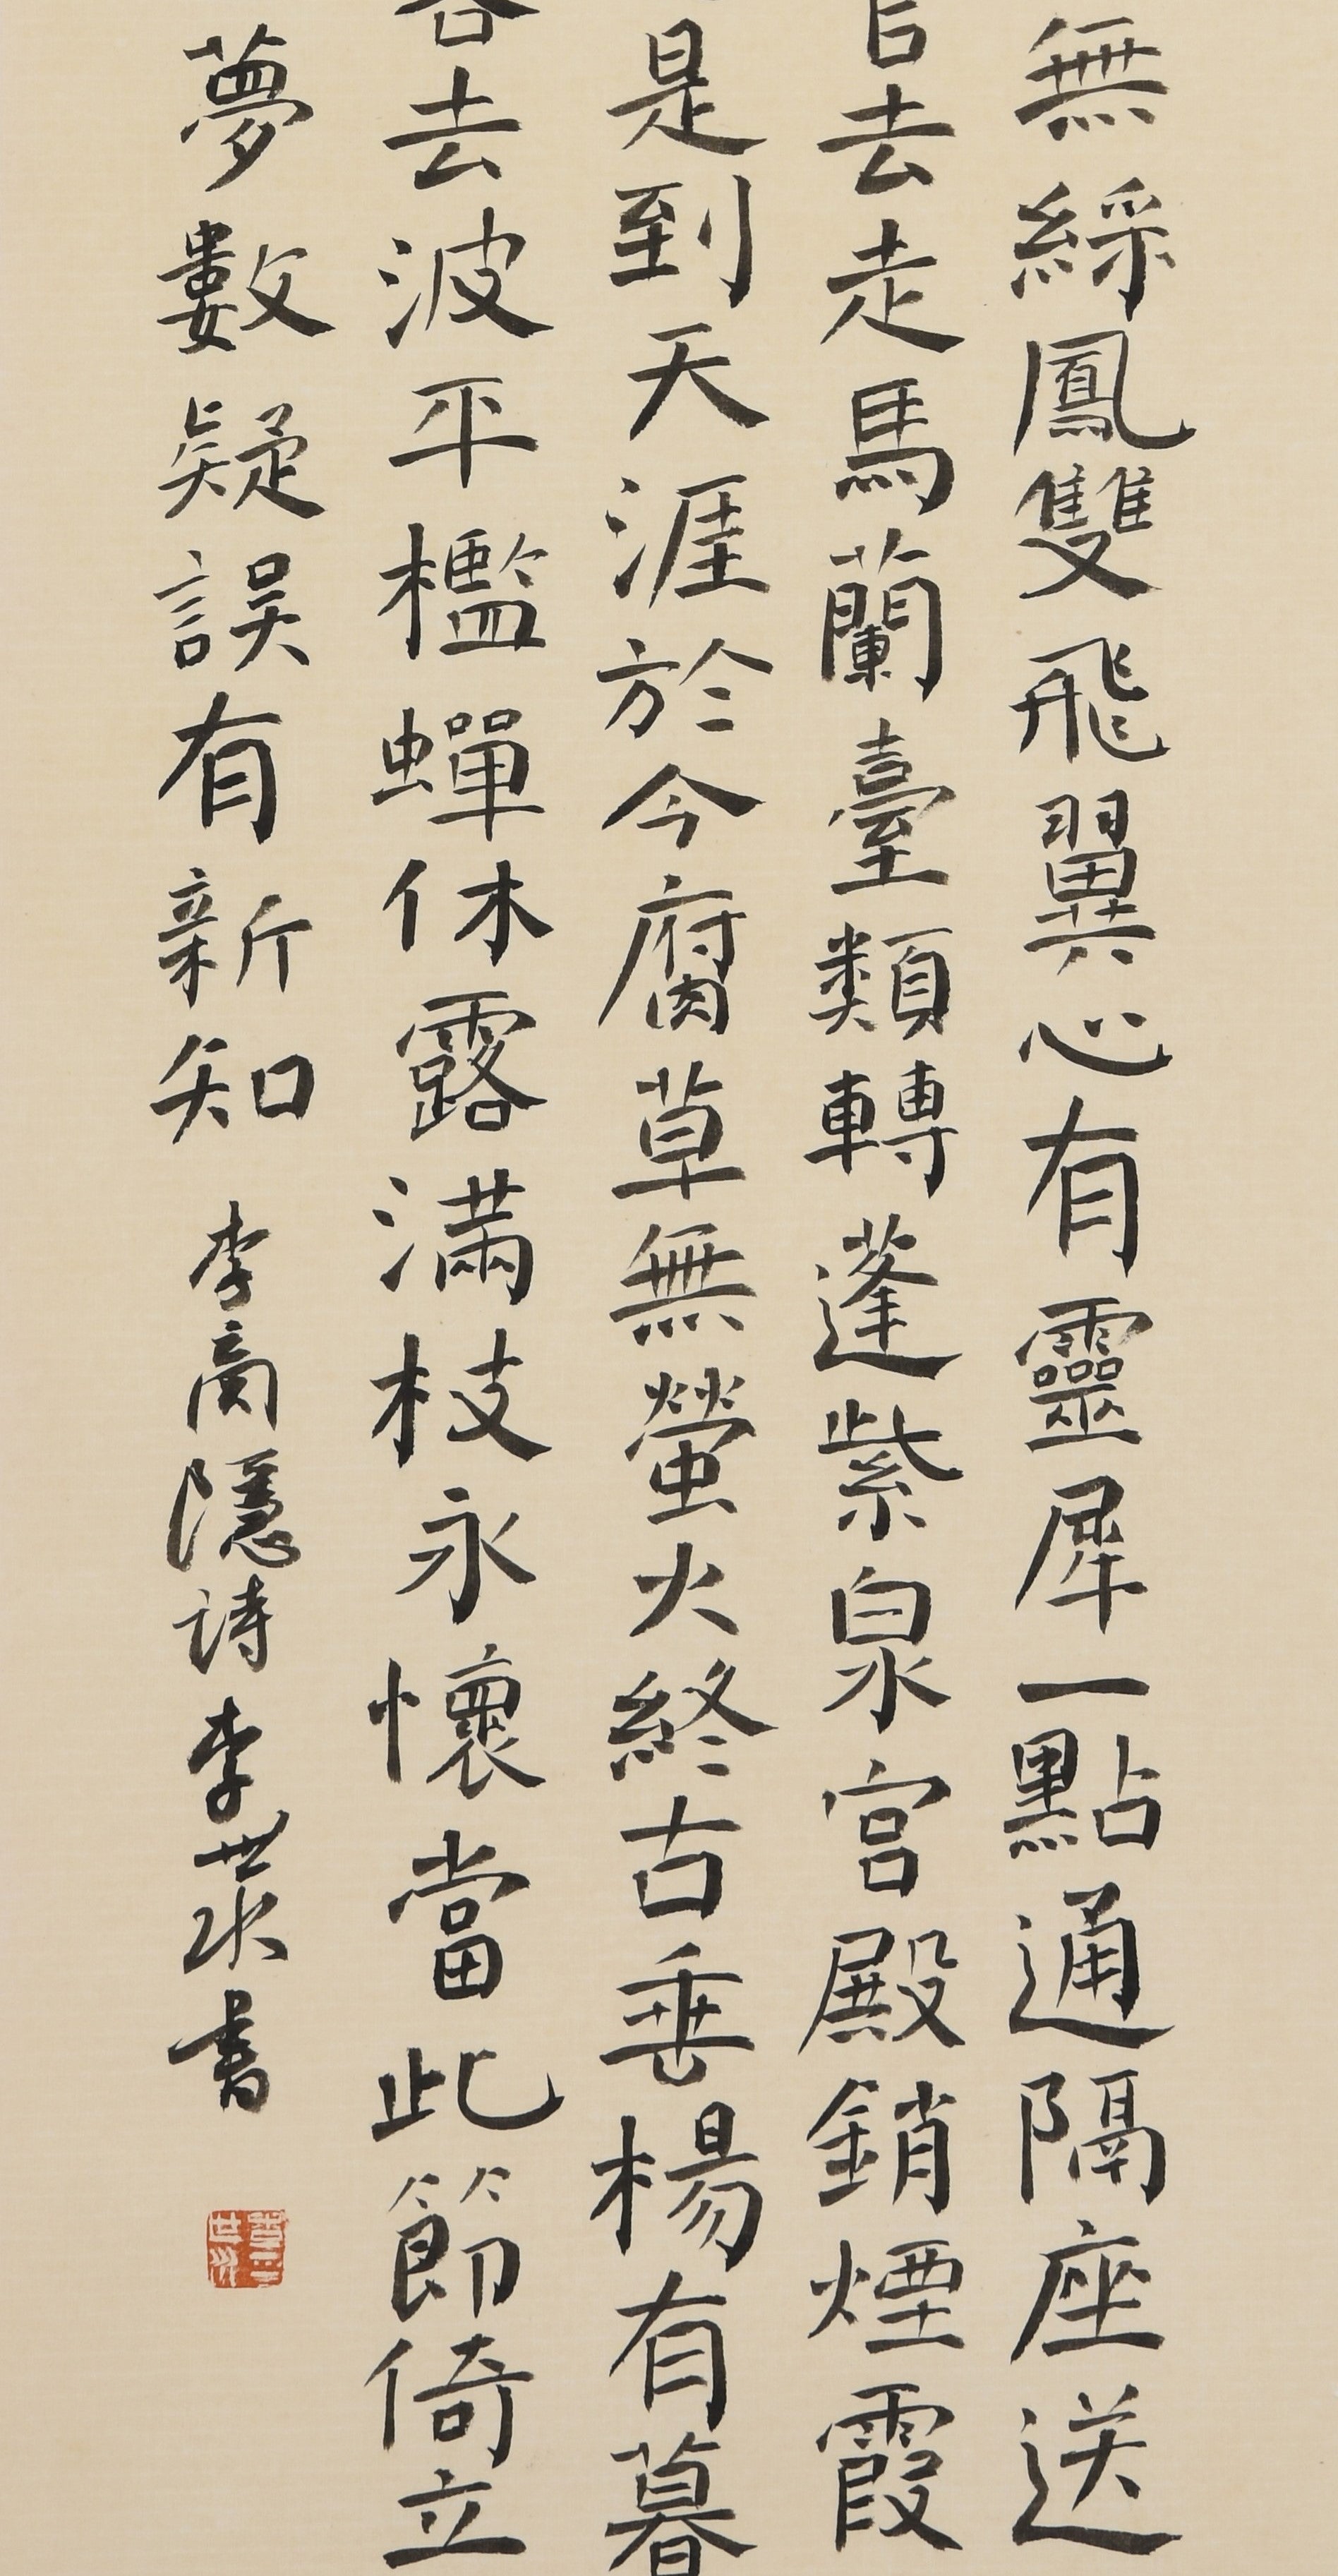 無綵鳳雙飛翼心有靈犀一點通隔座送
官去走馬蘭臺類轉蓬紫泉宮殿銷煙霞
是到天涯於今腐草無螢火終古垂楊有暮
去波平檻蟬休露滿枝永懷當此節倚立
夢數疑誤有新知
李商隱詩李世
書